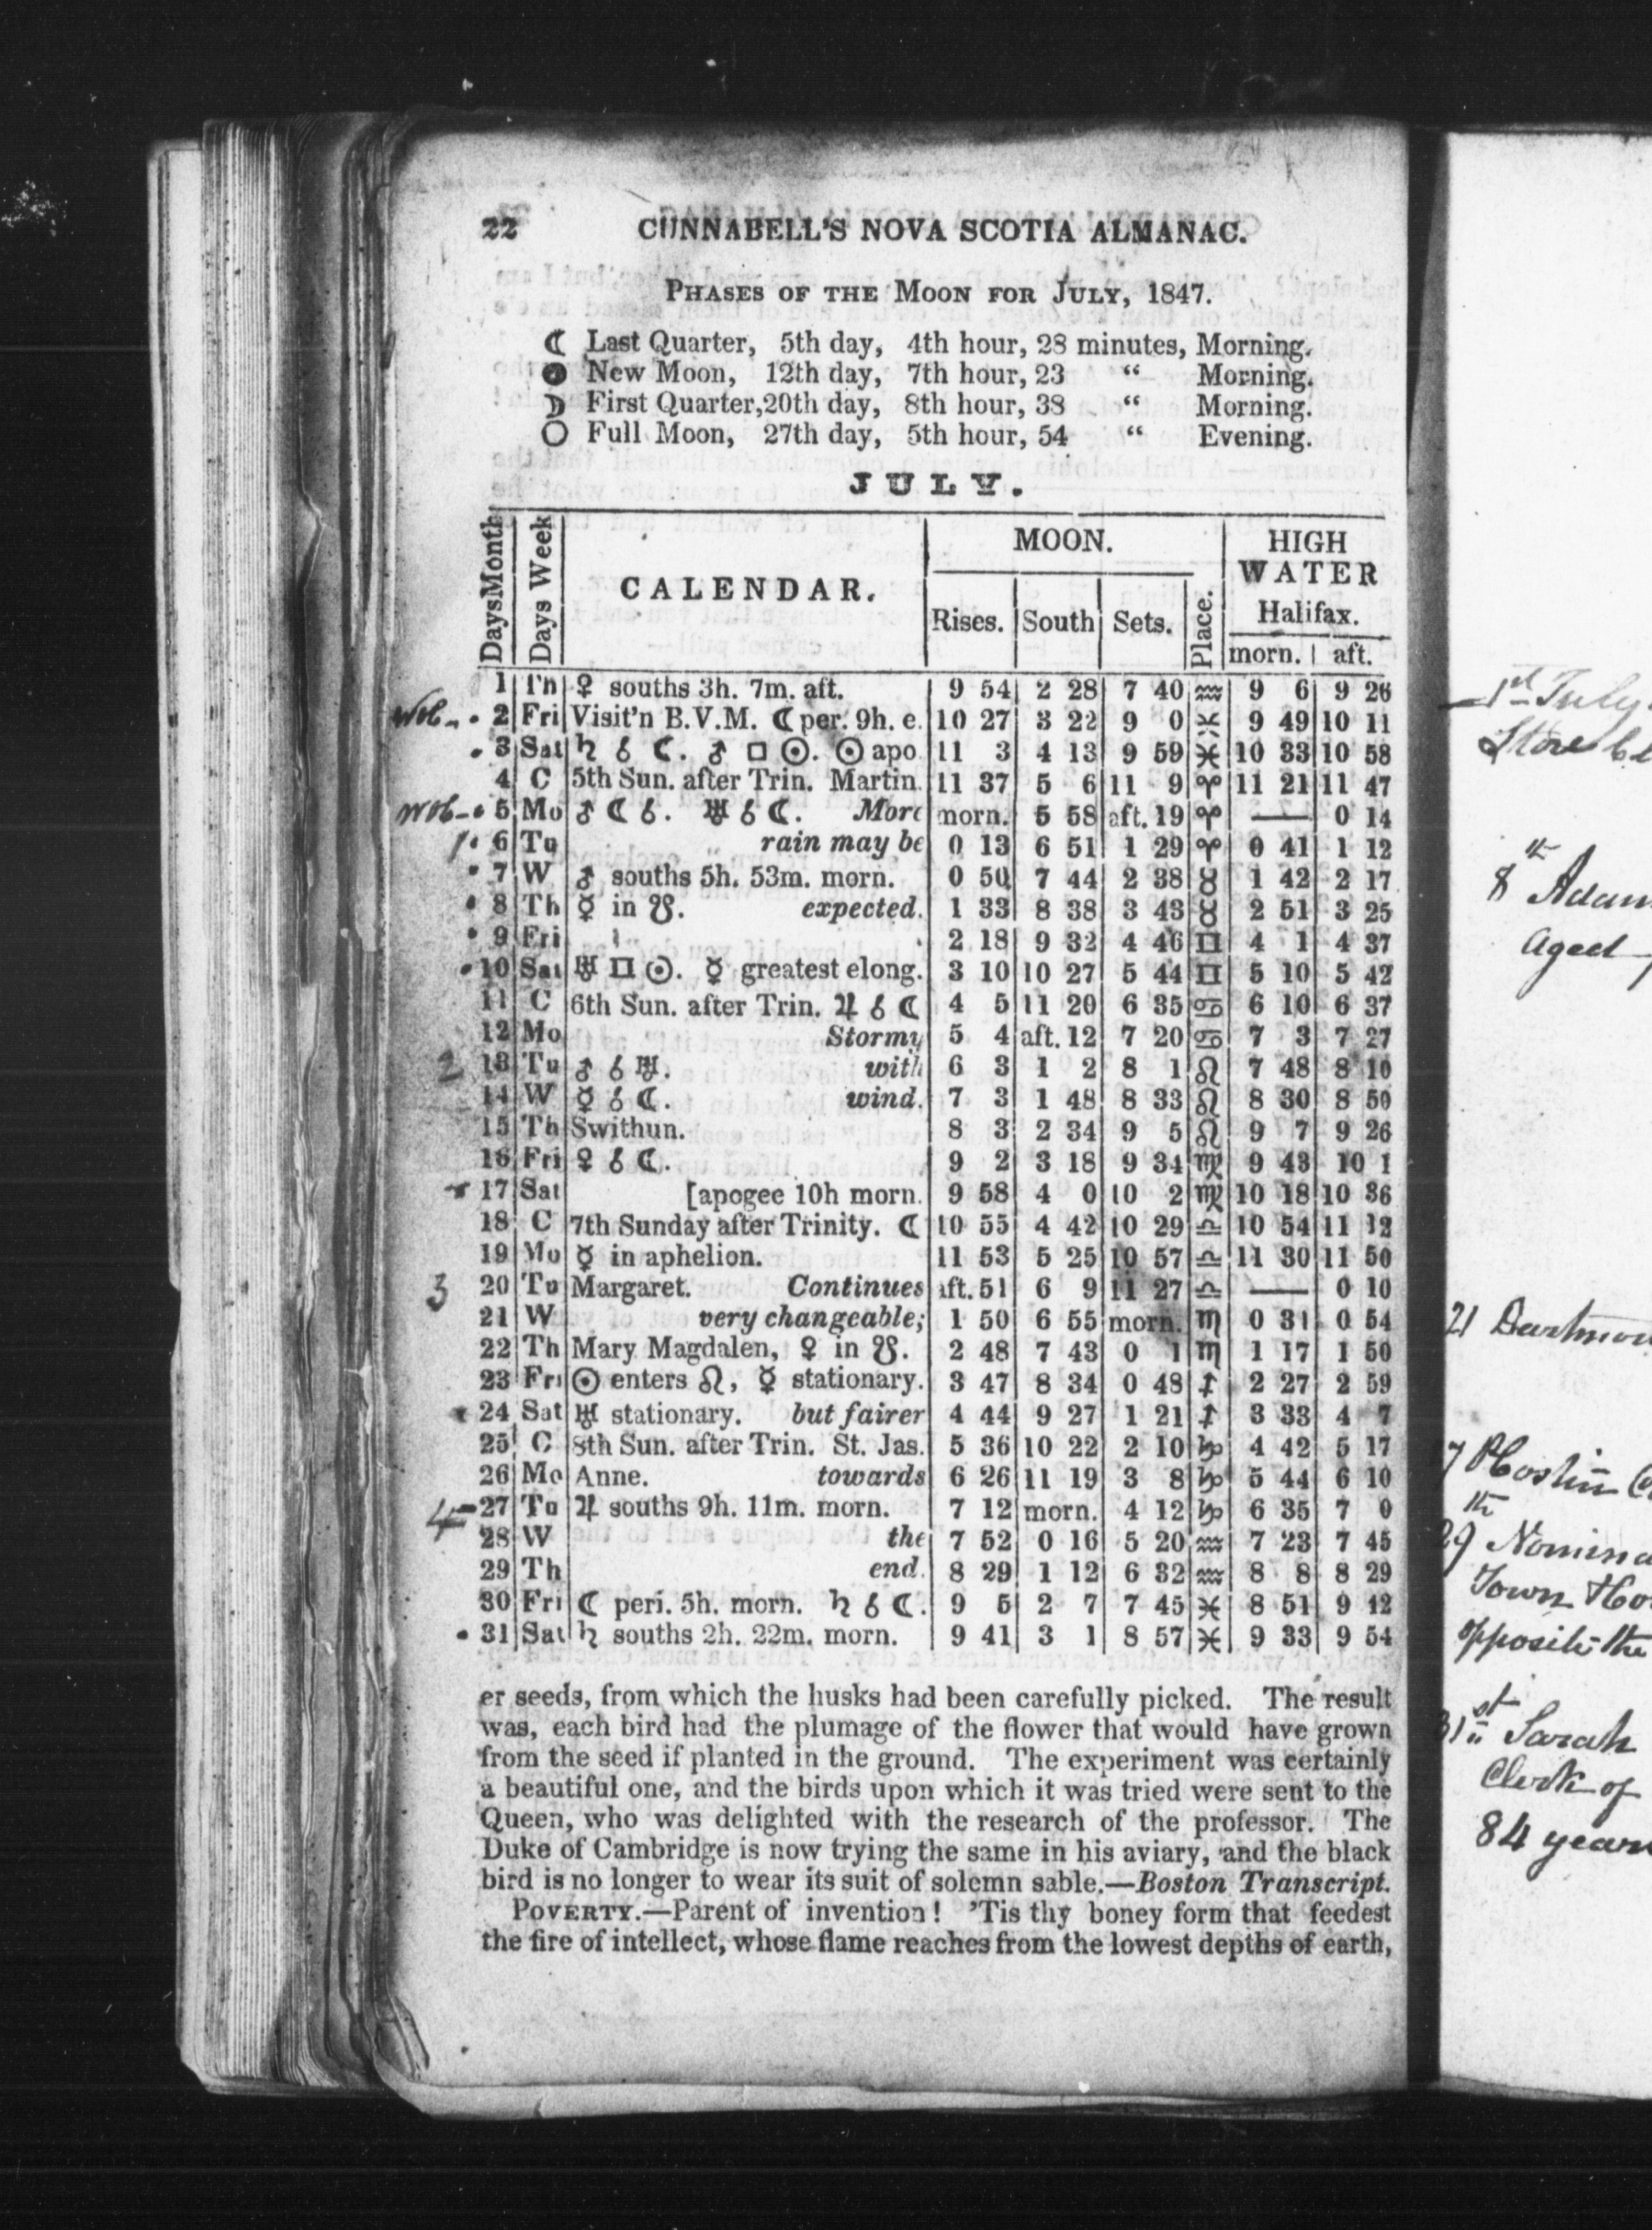 22 CUNNABELL'S NOVA SCOTIA ALMANAC.
PHASES OF THE MOON FOR JULY, 1847.
☾ Last Quarter, 5th day, 4th hour, 28 minutes, Morning.
● New Moon, 12th day, 7th hour, 23 “ Morning.
☽ First Quarter, 20th day, 8th hour, 38 “ Morning.
○ Full Moon, 27th day, 5th hour, 54 “ Evening.
JULY.
Days Month Days Week CALENDAR. MOON. HIGH WATER Halifax.
Rises. South Sets. Place. morn. aft.
1 Th ♀ souths 3h. 7m. aft. 9 54 2 28 7 40 ♒ 9 6 9 26
2 Fri Visit'n B.V.M. ☾ per. 9h. e. 10 27 3 22 9 0 ♓ 9 49 10 11
3 Sat ♄ ☌ ☾. ♂ □ ☉. ☉ apo 11 3 4 13 9 59 ♓ 10 33 10 58
4 C 5th Sun. after Trin. Martin. 11 37 5 6 11 9 ♈ 11 21 11 47
5 Mo ♂ ☾ ☌. ♅ ☌ ☾. More morn. 5 58 aft. 19 ♈ — 0 14
6 Tu rain may be 0 13 6 51 1 29 ♈ 0 41 1 12
7 W ♂ souths 5h. 53m. morn. 0 50 7 44 2 38 ♉ 1 42 2 17
8 Th ☿ in ☋. expected. 1 33 8 38 3 43 ♉ 2 51 3 25
9 Fri 2 18 9 32 4 46 ♊ 4 1 4 37
10 Sat ♅ □ ☉. ☿ greatest elong. 3 10 10 27 5 44 ♊ 5 10 5 42
11 C 6th Sun. after Trin. ♃ ☌ ☾ 4 5 11 20 6 35 ♋ 6 10 6 37
12 Mo Stormy 5 4 aft. 12 7 20 ♋ 7 3 7 27
2 13 Tu ♂ ☌ ♅. with 6 3 1 2 8 1 ♌ 7 48 8 10
14 W ☿ ☌ ☾. wind. 7 3 1 48 8 33 ♌ 8 30 8 50
15 Th Swithun. 8 3 2 34 9 5 ♌ 9 7 9 26
16 Fri ♀ ☌ ☾. 9 2 3 18 9 34 ♍ 9 43 10 1
17 Sat [apogee 10h morn. 9 58 4 0 10 2 ♍ 10 18 10 36
18 C 7th Sunday after Trinity. ☾ 10 55 4 42 10 29 ♎ 10 54 11 12
19 Mo ☿ in aphelion. 11 53 5 25 10 57 ♎ 11 30 11 50
3 20 Tu Margaret. Continues aft. 51 6 9 11 27 ♎ — 0 10
21 W very changeable; 1 50 6 55 morn. ♏ 0 31 0 54
22 Th Mary Magdalen, ♀ in ☋. 2 48 7 43 0 1 ♏ 1 17 1 50
23 Fri ☉ enters ♌, ☿ stationary. 3 47 8 34 0 48 ♐ 2 27 2 59
24 Sat ♅ stationary. but fairer 4 44 9 27 1 21 ♐ 3 33 4 7
25 C 8th Sun. after Trin. St. Jas. 5 36 10 22 2 10 ♑ 4 42 5 17
26 Mo Anne. towards 6 26 11 19 3 8 ♑ 5 44 6 10
4 27 Tu ♃ souths 9h. 11m. morn. 7 12 morn. 4 12 ♑ 6 35 7 0
28 W the 7 52 0 16 5 20 ♒ 7 23 7 45
29 Th end. 8 29 1 12 6 32 ♒ 8 8 8 29
30 Fri ☾ peri. 5h. morn. ♄ ☌ ☾. 9 5 2 7 7 45 ♓ 8 51 9 12
31 Sat ♄ souths 2h. 22m. morn. 9 41 3 1 8 57 ♓ 9 33 9 54
er seeds, from which the husks had been carefully picked. The result
was, each bird had the plumage of the flower that would have grown
from the seed if planted in the ground. The experiment was certainly
a beautiful one, and the birds upon which it was tried were sent to the
Queen, who was delighted with the research of the professor. The
Duke of Cambridge is now trying the same in his aviary, and the black
bird is no longer to wear its suit of solemn sable.—Boston Transcript.
POVERTY.—Parent of invention! 'Tis thy boney form that feedest
the fire of intellect, whose flame reaches from the lowest depths of earth,
1st July
Store
8th Adam
aged
21 Dartmou
29th Nomina
Town Ho
opposite the
31st Sarah
Clerk of
84 years